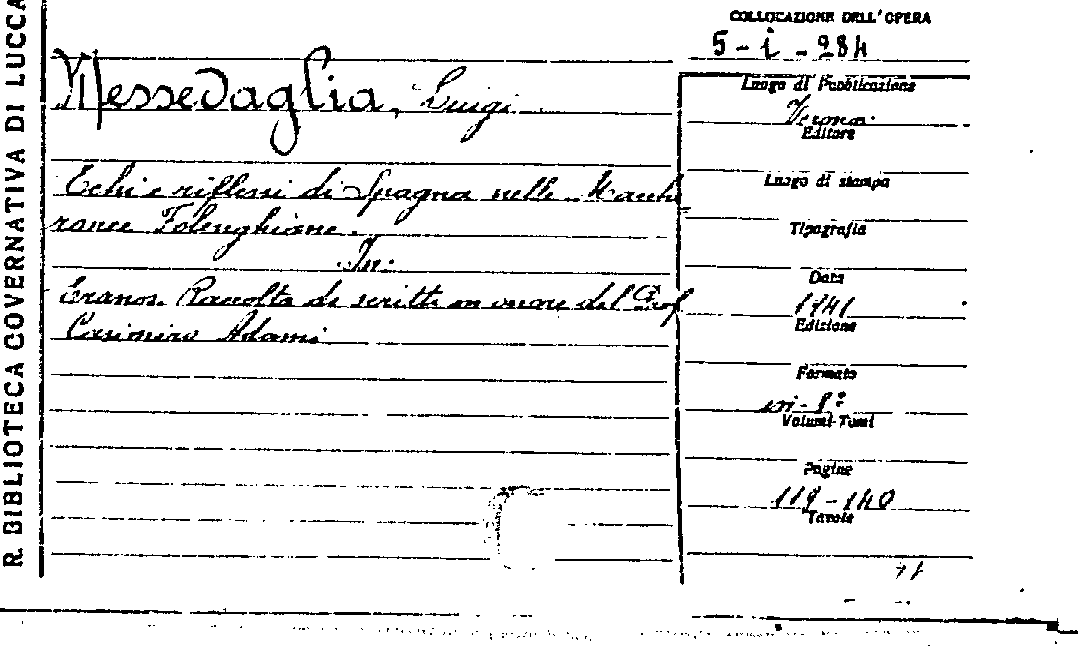 R. BIBLIOTECA GOVERNATIVA DI LUCCA
COLLOCAZIONE DELL'OPERA
5 - i - 284
Messedaglia, Luigi
Echi e riflessi di Spagna nelle Macche
ronee Folenghiane.
In:
Eranos. Raccolta di scritti in onore del Prof.
Casimiro Adami
Luogo di Pubblicazione
Verona
Editore
Luogo di stampa
Tipografia
Data
1941
Edizione
Formato
in-8º
Volumi-Tomi
Pagine
119-140
Tavole